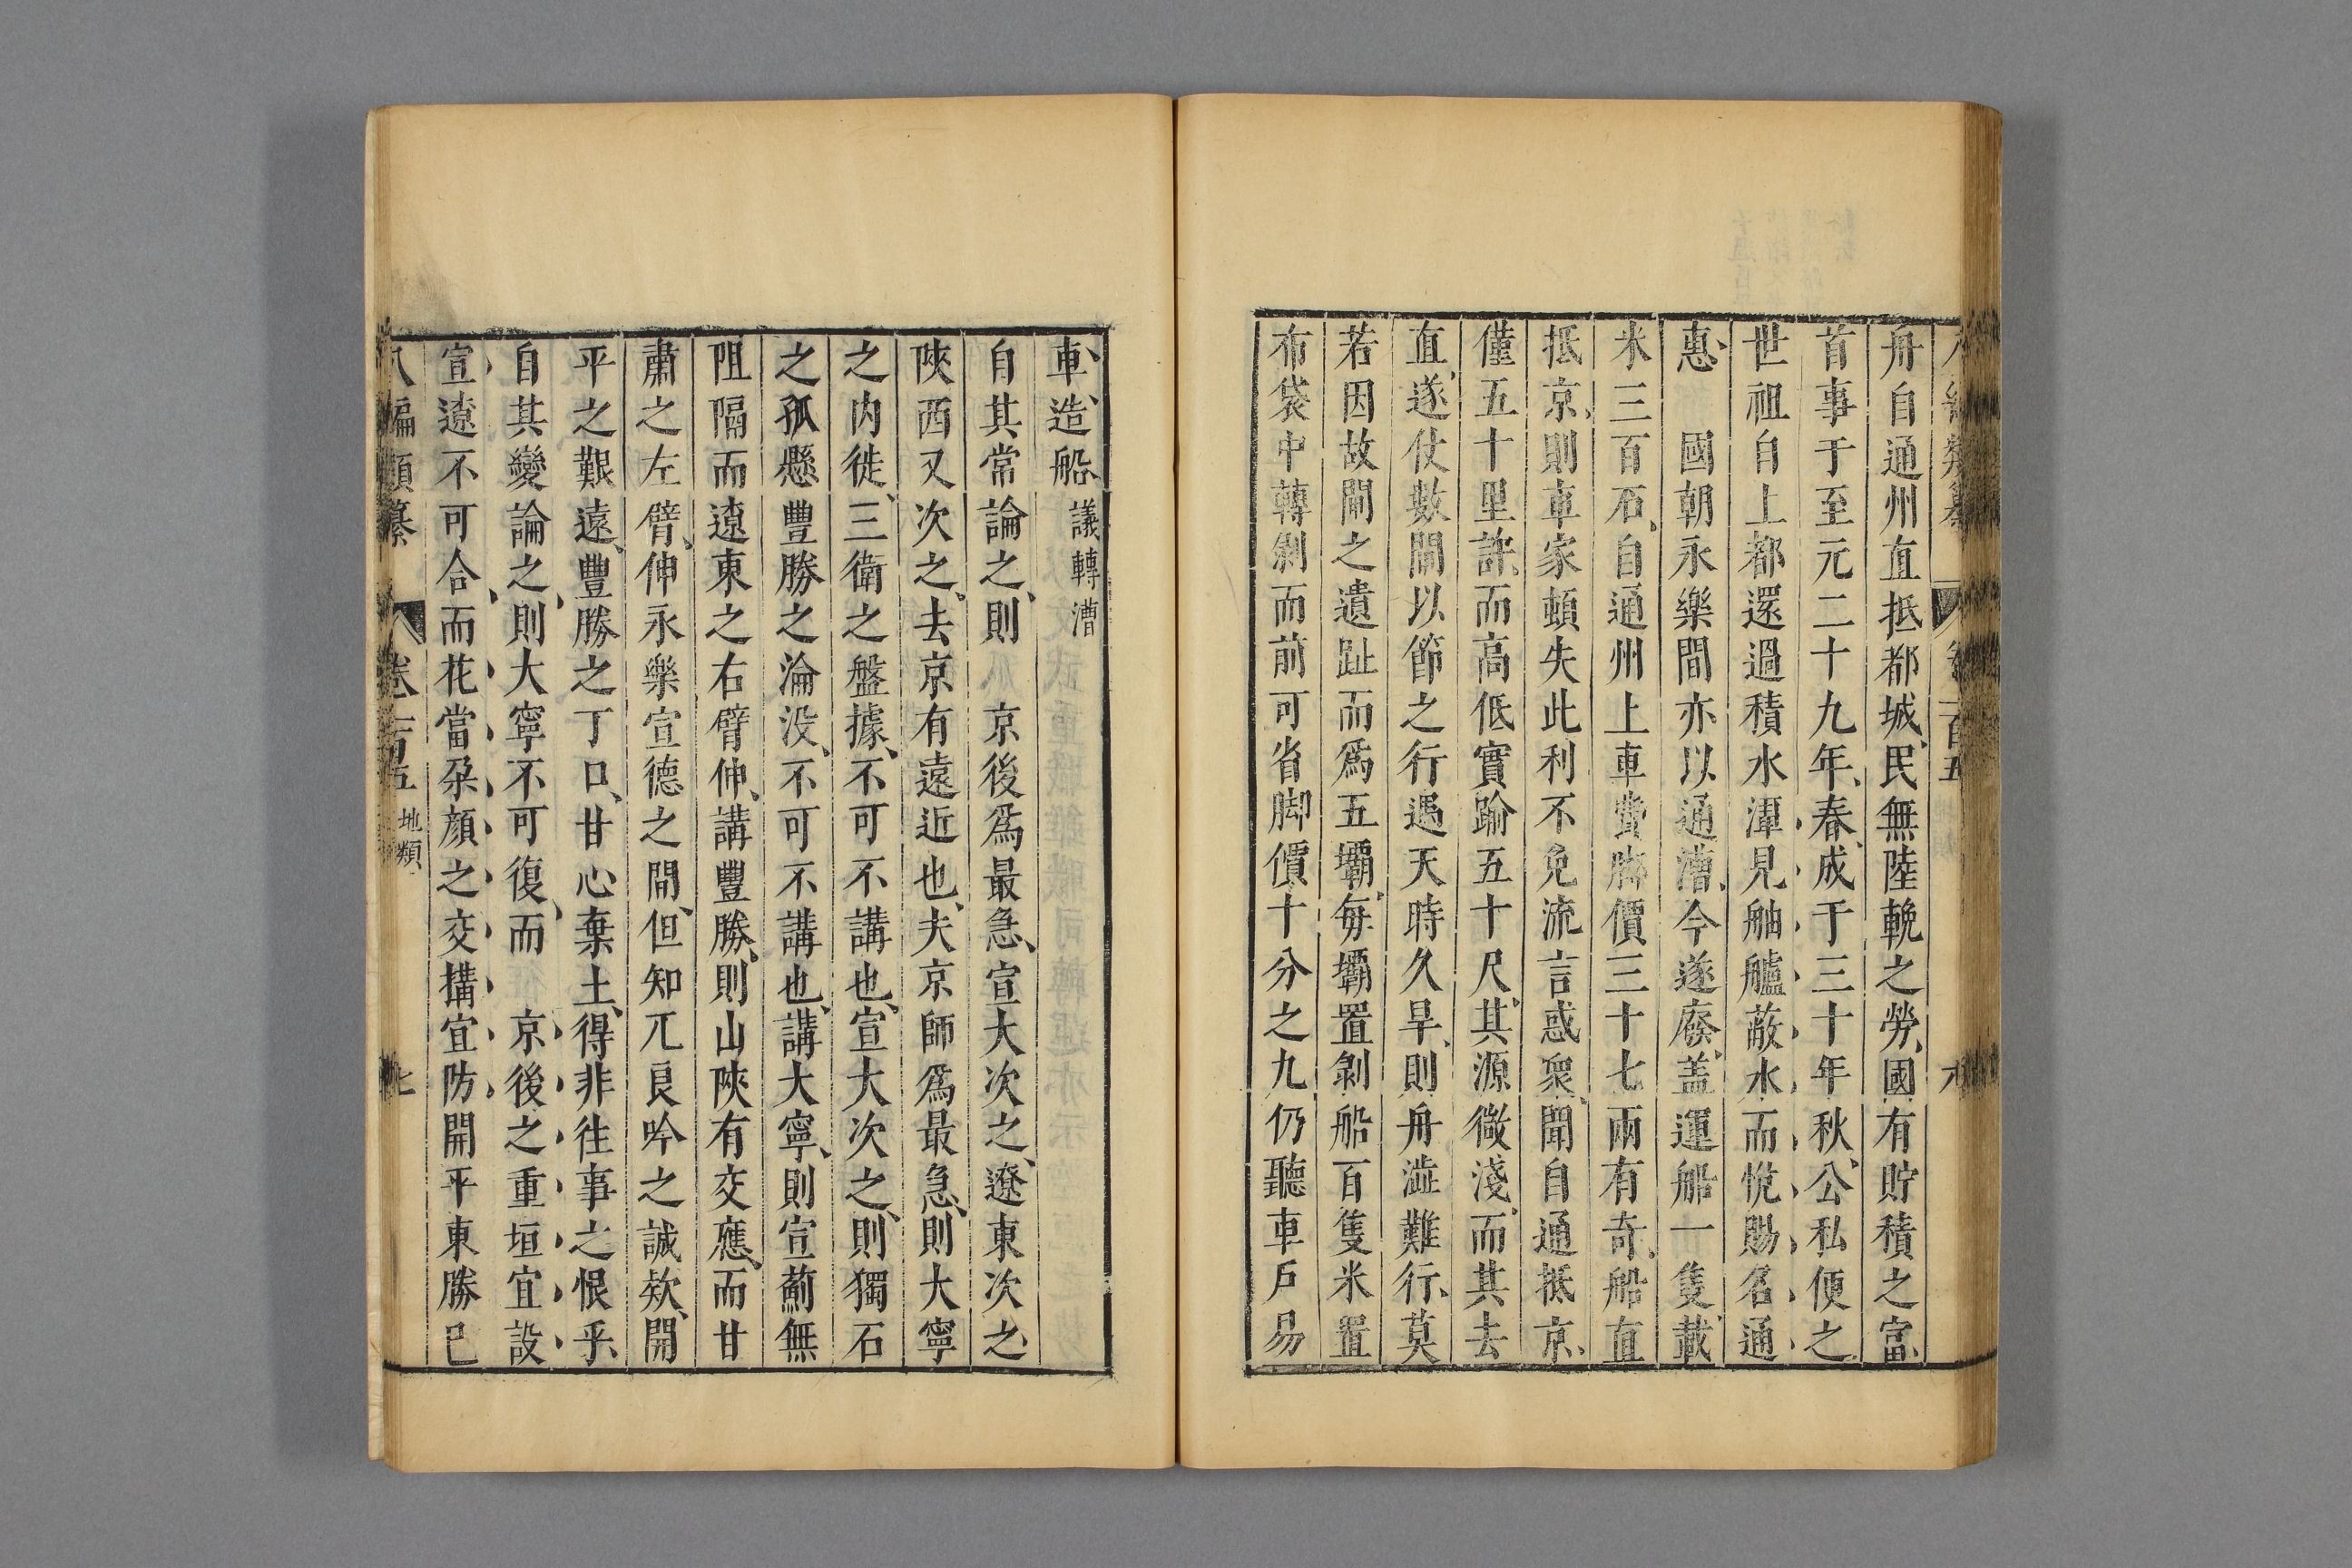 舟自通州直抵都城、民無陸輓之勞、國有貯積之富、
首事于至元二十九年、春、成于三十年秋、公私便之
世祖自上都還過積水潭見舳艫蔽水而悅賜名通
惠、 國朝永樂間亦以通漕、今遂廢、蓋運船一隻、載
米三百石、自通州上車費脚價三十七兩有奇、船直
抵京、則車家頓失此利不免流言惑衆、聞自通抵京、
僅五十里許、而高低實踰五十尺、其源微淺、而其去
直、遂仗數閘以節之行遇天時久旱、則舟澁難行、莫
若因故閘之遺趾而爲五壩、每壩置剝船百隻米置
布袋中轉剝而前可省脚價十分之九仍聽車戶易
車、造船、議轉漕
自其常論之、則 京後爲最急、宣大次之、遼東次之、
陝西又次之、去京有遠近也、夫京師爲最急、則大寧
之内徙、三衛之盤據、不可不講也、宣大次之、則獨石
之孤懸豐勝之淪没、不可不講也、講大寧、則宣薊無
阻隔而遼東之右臂伸、講豐勝、則山陝有交應、而甘
肅之左臂、伸永樂宣德之間、但知兀良吟之誠欵、開
平之艱遠、豐勝之丁口、甘心棄土、得非往事之恨乎、
自其變論之、則大寧不可復、而 京後之重垣宜設
宣遼不可合、而花當朶顏之交搆宜防開平東勝已
八編類纂 卷一百五 地類 七